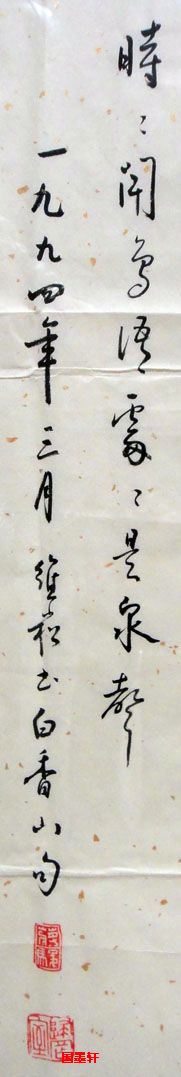 時〻聞鳥語處〻是泉聲
一九九四年三月維崧書白香山句
國墨轩